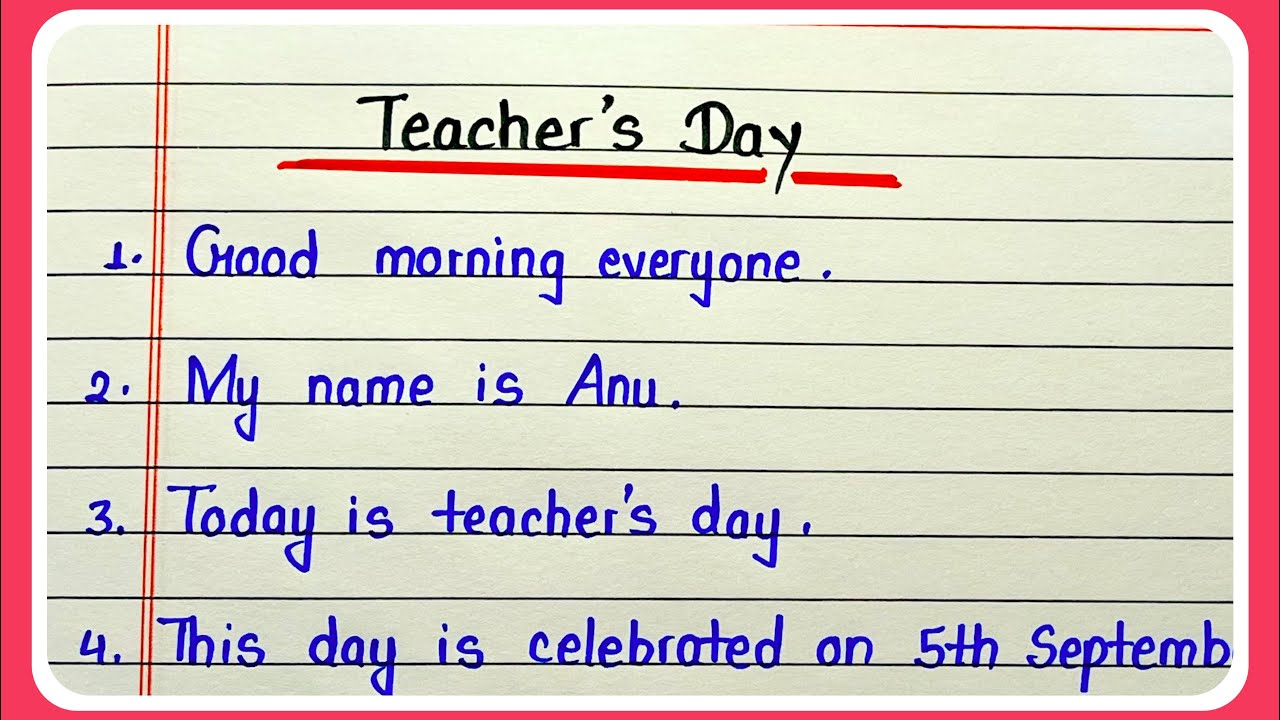 Teacher's Day
1. Good morning everyone.
2. My name is Anu.
3. Today is teacher's day.
4. This day is celebrated on 5th Septemb